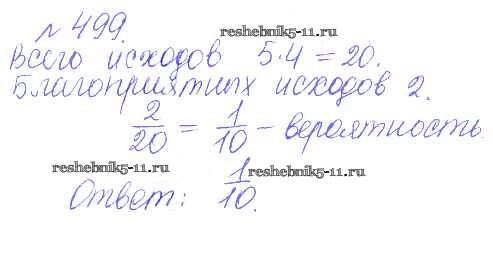 №499.
reshebnik5-11.ru
Всего исходов 5·4=20.
Благоприятных исходов 2.
2/20 = 1/10 – вероятность.
reshebnik5-11.ru reshebnik5-11.ru
Ответ: 1/10.